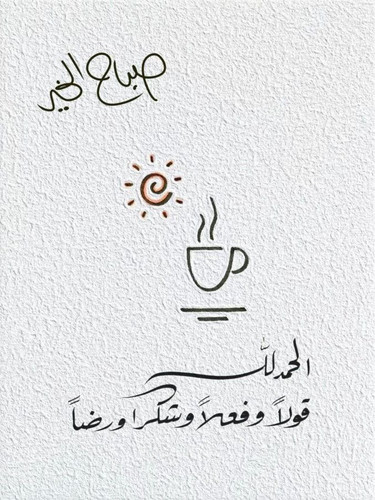 صباح الخير
الحمد لله
قولاً وفعلاً وشكرا ورضاً